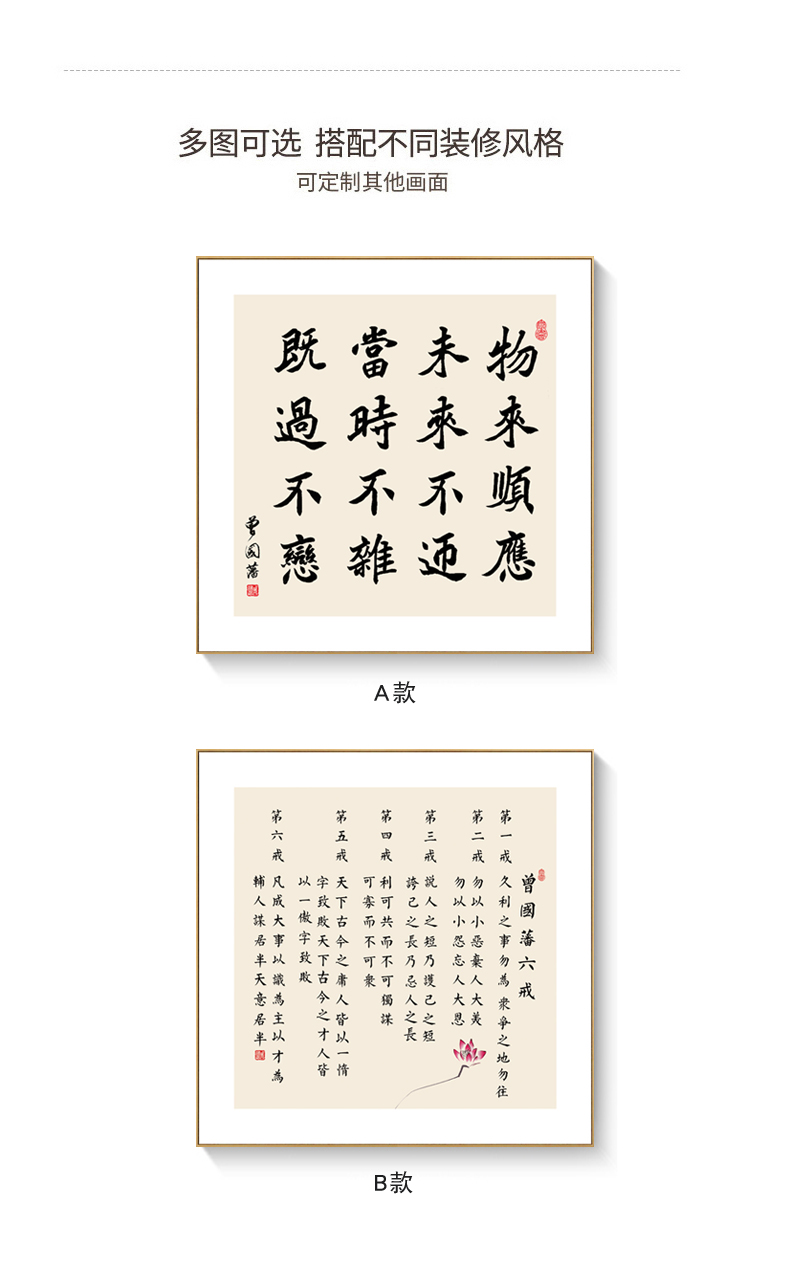 多图可选 搭配不同装修风格
可定制其他画面
物來順應
未來不迎
當時不雜
既過不戀
曾國藩
A款
曾國藩六戒
第一戒 久利之事勿為 衆爭之地勿往
第二戒 勿以小惡棄人大美
勿以小怨忘人大恩
第三戒 說人之短乃護己之短
誇己之長乃忌人之長
第四戒 利可共而不可獨謀
可寡而不可衆
第五戒 天下古今之庸人皆以一惰
字致敗天下古今之才人皆
以一傲字致敗
第六戒 凡成大事以識為主以才為
輔人謀居半天意居半
B款